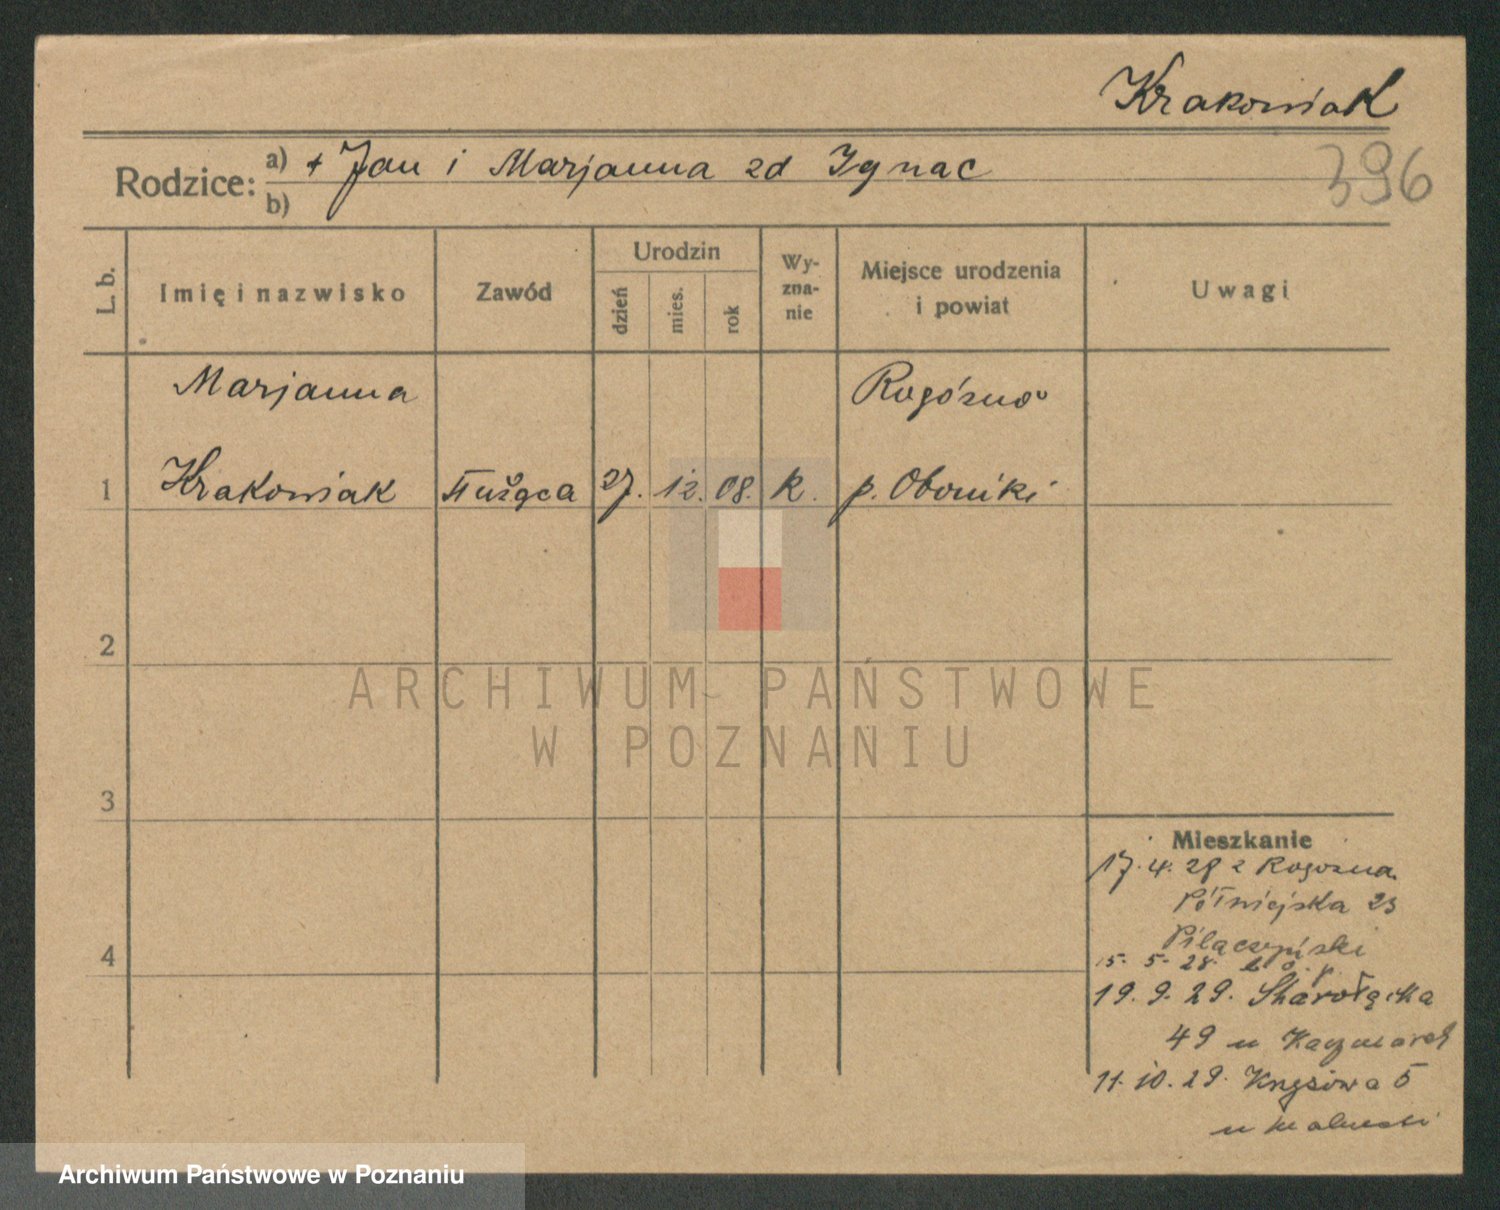 Krakowiak
396
Rodzice: a) + Jan i Marjanna zd Ignac
b)
L. b. Imię i nazwisko Zawód Urodzin dzień mies. rok Wyznanie Miejsce urodzenia i powiat Uwagi
Marjanna Rogóźno
1 Krakowiak służąca 27. 12. 08. k. p. Oborniki
2
ARCHIWUM PAŃSTWOWE
W POZNANIU
3
Mieszkanie
17. 4. 28 z Rogozna
Półwiejska 23
4 Pilaczyński
15. 5. 28.
19. 9. 29. Starołęcka
49 u Kaczmarek
11. 10. 29. 5
u
Archiwum Państwowe w Poznaniu